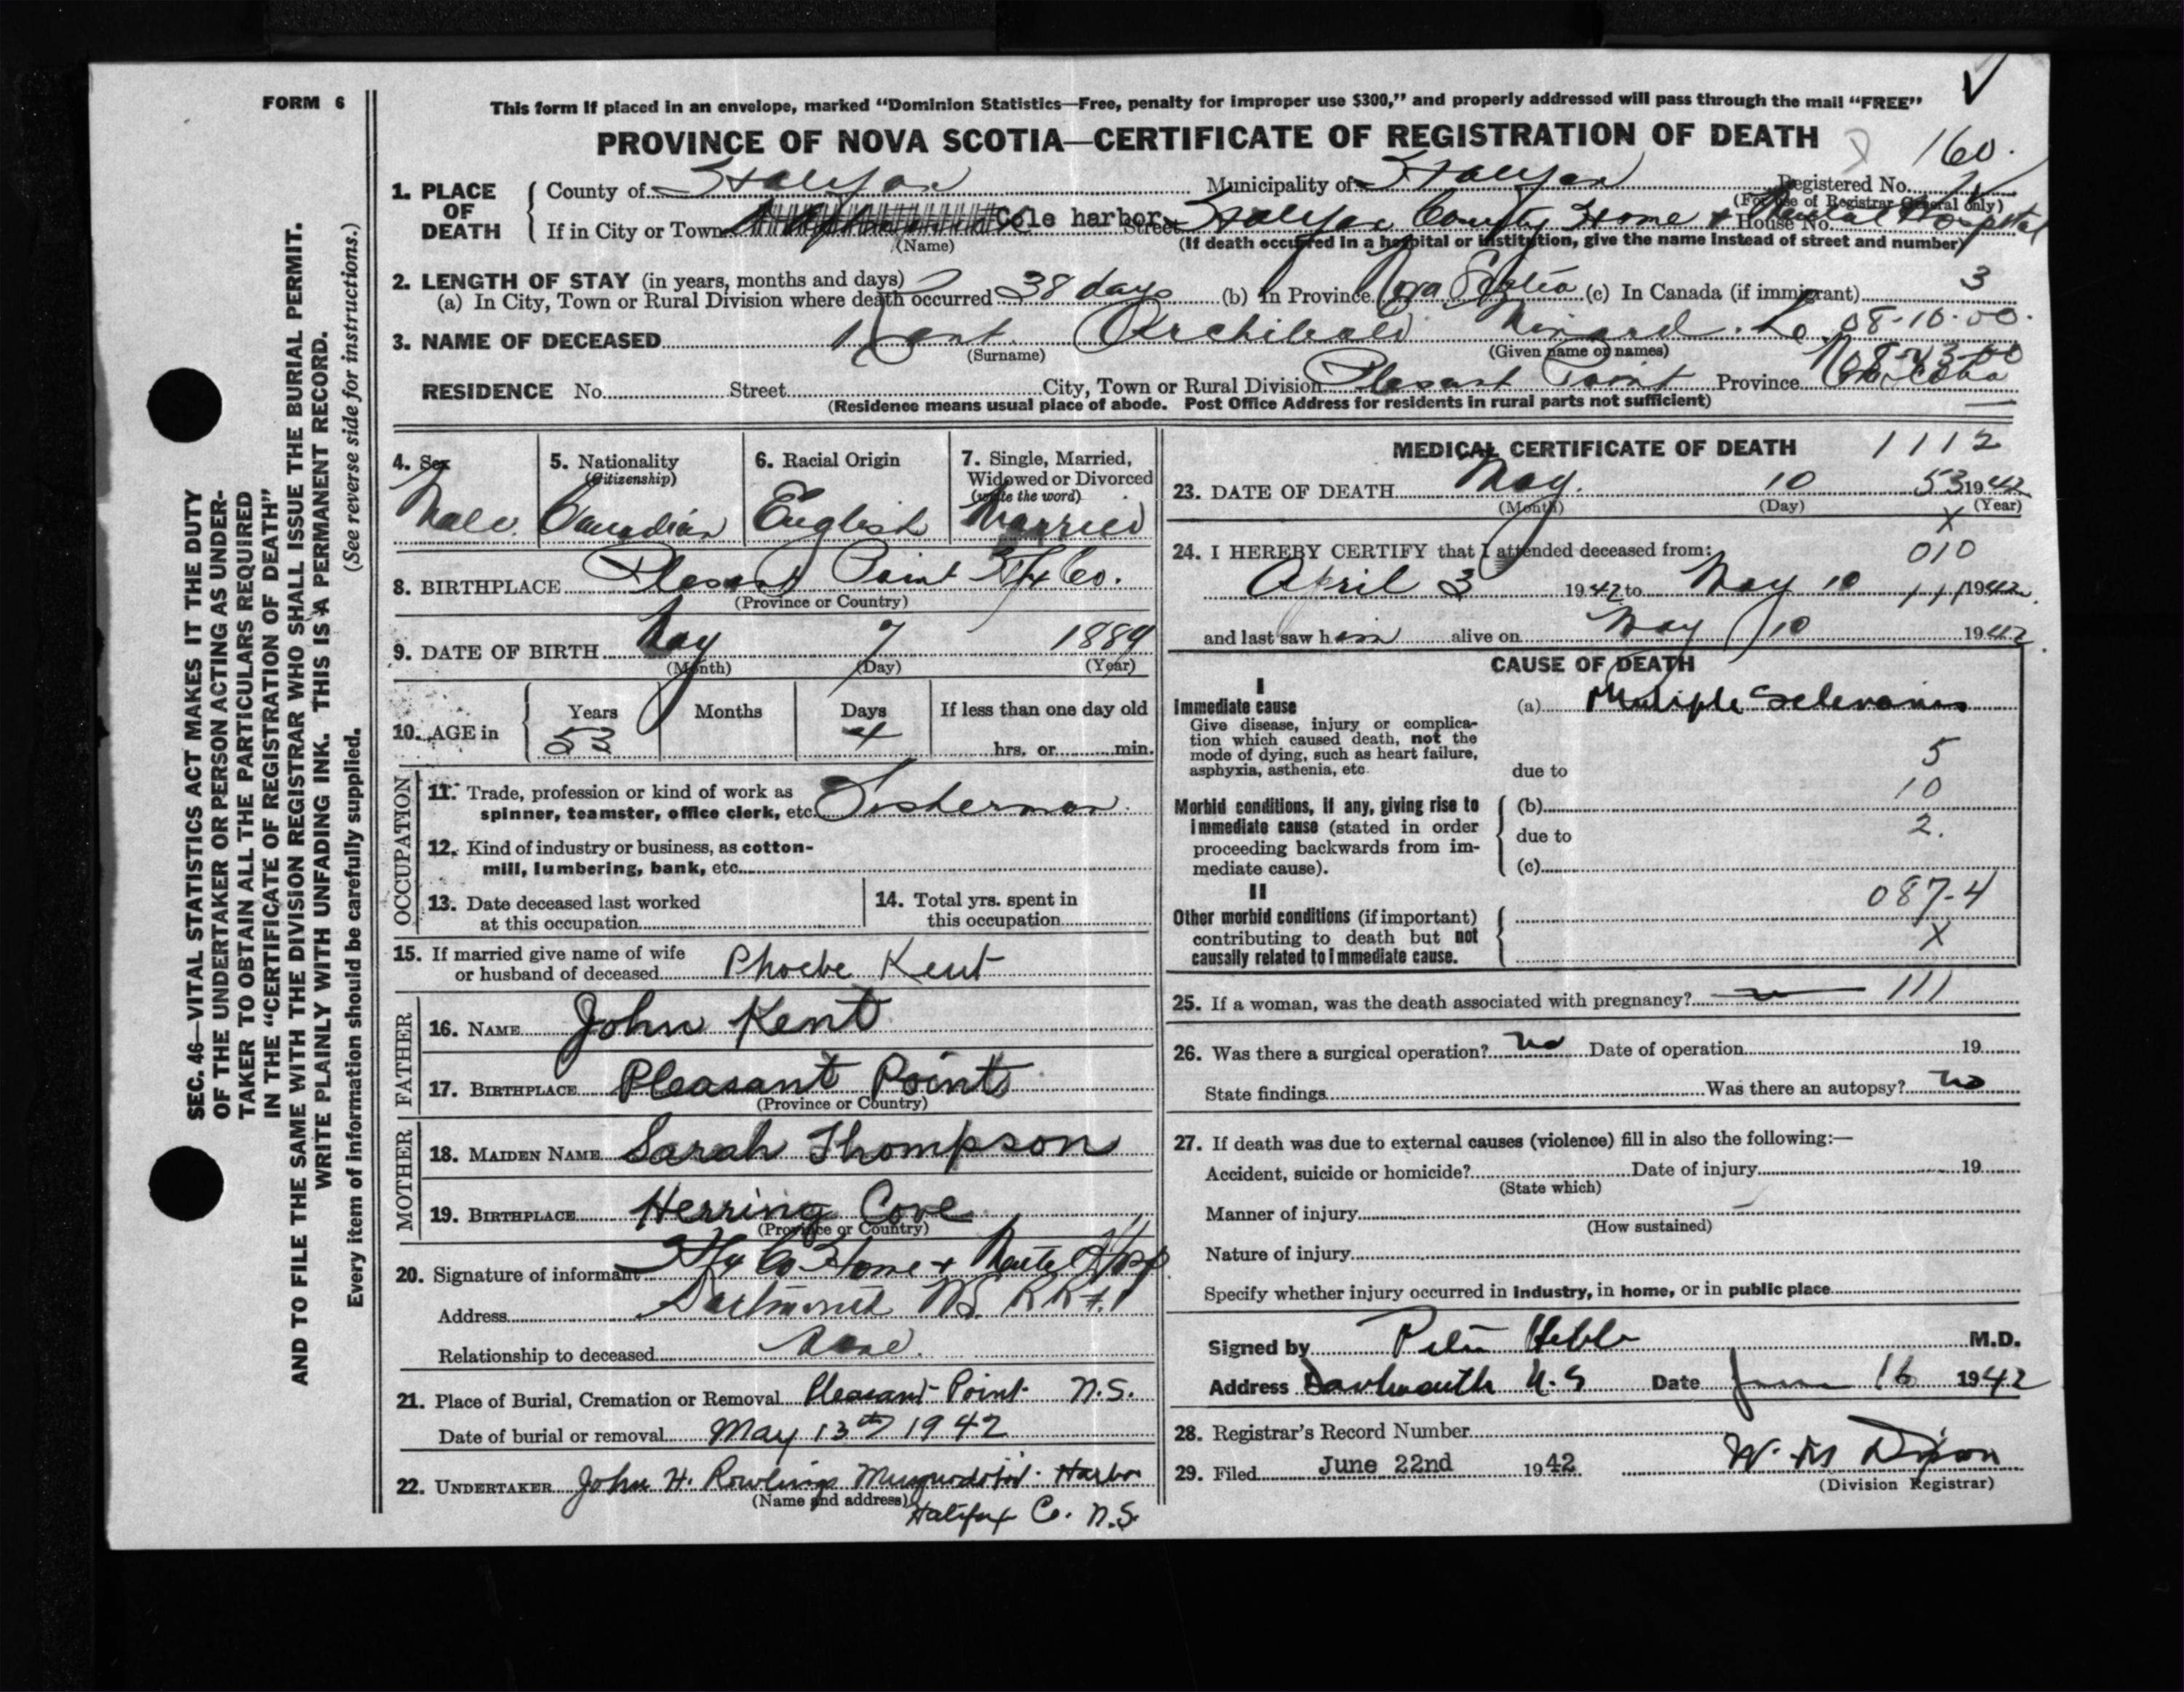 FORM 6
This form if placed in an envelope, marked “Dominion Statistics—Free, penalty for improper use $300,” and properly addressed will pass through the mail “FREE”
PROVINCE OF NOVA SCOTIA—CERTIFICATE OF REGISTRATION OF DEATH
160.
1. PLACE OF DEATH
County of Halifax Municipality of Halifax Registered No.
(For use of Registrar General only)
If in City or Town Cole harbor Street Halifax County Home + Mental Hospital House No.
(Name) (If death occurred in a hospital or institution, give the name instead of street and number)
2. LENGTH OF STAY (in years, months and days)
(a) In City, Town or Rural Division where death occurred 38 days (b) In Province Nova Scotia (c) In Canada (if immigrant) 3
3. NAME OF DECEASED Kent. Archibald 08-10-00.
(Surname) (Given name or names)
RESIDENCE No. Street City, Town or Rural Division Plesant Point Province
(Residence means usual place of abode. Post Office Address for residents in rural parts not sufficient)
4. Sex
Male.
5. Nationality
(Citizenship)
Canadian
6. Racial Origin
English
7. Single, Married, Widowed or Divorced
(write the word)
Married
8. BIRTHPLACE Plesant Point Hfx Co.
(Province or Country)
9. DATE OF BIRTH May 7 1889
(Month) (Day) (Year)
10. AGE in Years 53 Months Days 4 If less than one day old
hrs. or min.
OCCUPATION
11. Trade, profession or kind of work as
spinner, teamster, office clerk, etc. Fisherman.
12. Kind of industry or business, as cotton-
mill, lumbering, bank, etc.
13. Date deceased last worked
at this occupation
14. Total yrs. spent in
this occupation
15. If married give name of wife
or husband of deceased Phoebe Kent
FATHER
16. NAME John Kent
17. BIRTHPLACE Pleasant Point
(Province or Country)
MOTHER
18. MAIDEN NAME Sarah Thompson
19. BIRTHPLACE Herring Cove
(Province or Country)
20. Signature of informant Hfx Co Home + Mental Hosp
Address Dartmouth NS. RR #1
Relationship to deceased None.
21. Place of Burial, Cremation or Removal Pleasant Point N.S.
Date of burial or removal May 13th 1942
22. UNDERTAKER John H. Rowlings Musquodoboit Harbor
(Name and address)
Halifax Co. N.S.
MEDICAL CERTIFICATE OF DEATH 1112
23. DATE OF DEATH May. 10 53 1942
(Month) (Day) (Year)
X
24. I HEREBY CERTIFY that I attended deceased from: 010
April 3 1942 to May 10 111 1942
and last saw him alive on May 10 1942
CAUSE OF DEATH
I
Immediate cause
Give disease, injury or complica-
tion which caused death, not the
mode of dying, such as heart failure,
asphyxia, asthenia, etc.
(a) Multiple Sclerosis
5
due to
10
Morbid conditions, if any, giving rise to
immediate cause (stated in order
proceeding backwards from im-
mediate cause).
(b)
due to 2.
(c)
II
087-4
Other morbid conditions (if important)
contributing to death but not
causally related to immediate cause.
X
25. If a woman, was the death associated with pregnancy? 111
26. Was there a surgical operation? no Date of operation 19
State findings Was there an autopsy? no
27. If death was due to external causes (violence) fill in also the following:—
Accident, suicide or homicide? Date of injury 19
(State which)
Manner of injury
(How sustained)
Nature of injury
Specify whether injury occurred in industry, in home, or in public place
Signed by Peter Hebb M.D.
Address Dartmouth N.S Date June 16 1942
28. Registrar's Record Number
29. Filed June 22nd 1942 W. M Dixon
(Division Registrar)
SEC. 46—VITAL STATISTICS ACT MAKES IT THE DUTY
OF THE UNDERTAKER OR PERSON ACTING AS UNDER-
TAKER TO OBTAIN ALL THE PARTICULARS REQUIRED
IN THE “CERTIFICATE OF REGISTRATION OF DEATH”
AND TO FILE THE SAME WITH THE DIVISION REGISTRAR WHO SHALL ISSUE THE BURIAL PERMIT.
WRITE PLAINLY WITH UNFADING INK. THIS IS A PERMANENT RECORD.
Every item of information should be carefully supplied. (See reverse side for instructions.)